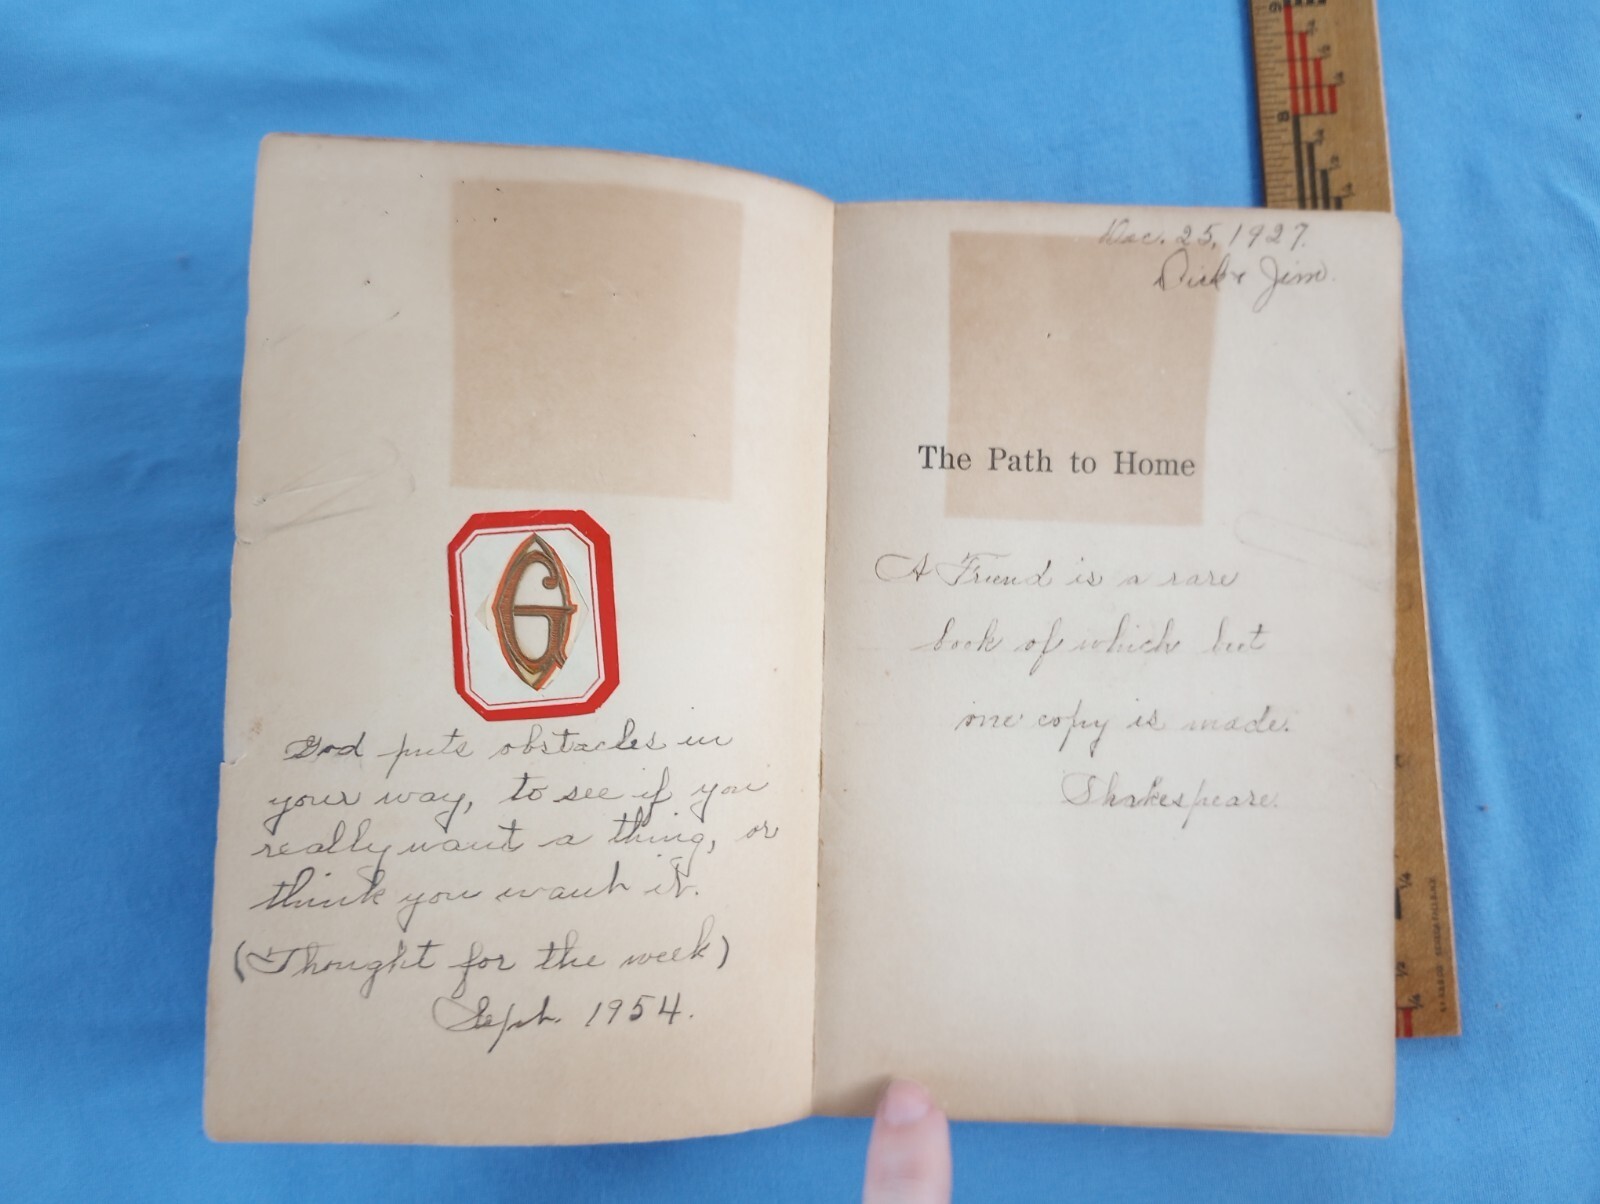 G
God puts obstacles in
your way, to see if you
really want a thing, or
think you want it.
(Thought for the week)
Sept. 1954.
Dec. 25, 1927.
Dick & Jim.
The Path to Home
A Friend is a rare
book of which but
one copy is made.
Shakespeare.